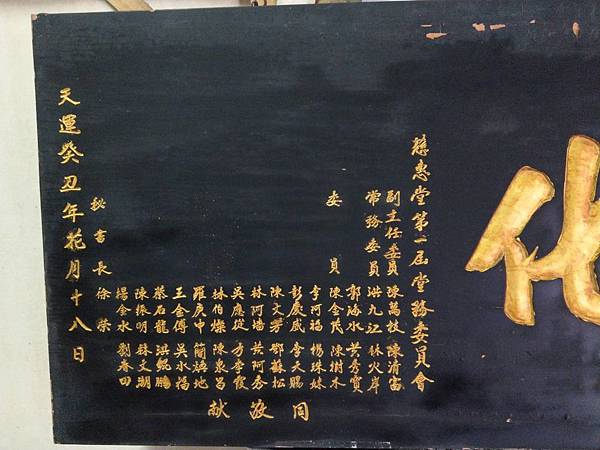 化
慈惠堂第一屆堂務委員會
副主任委員 陳萬枝 陳清富
常務委員 洪九江 林火岸
郭海水 黃秀寶
委員 陳金民 陳樹木
李河福 楊珠妹
彭慶威 李天賜
陳文芳 鄂蘇松
林阿墻 黃阿秀
吳應從 方李霞
林伯燦 陳泉昌
羅庚中 簡媜地
王金傳 吳水福
蔡石龍 洪鯤鵬
陳振明 林文湖
楊金水 劉春田
秘書長 徐榮
同敬献
天運癸丑年花月十八日